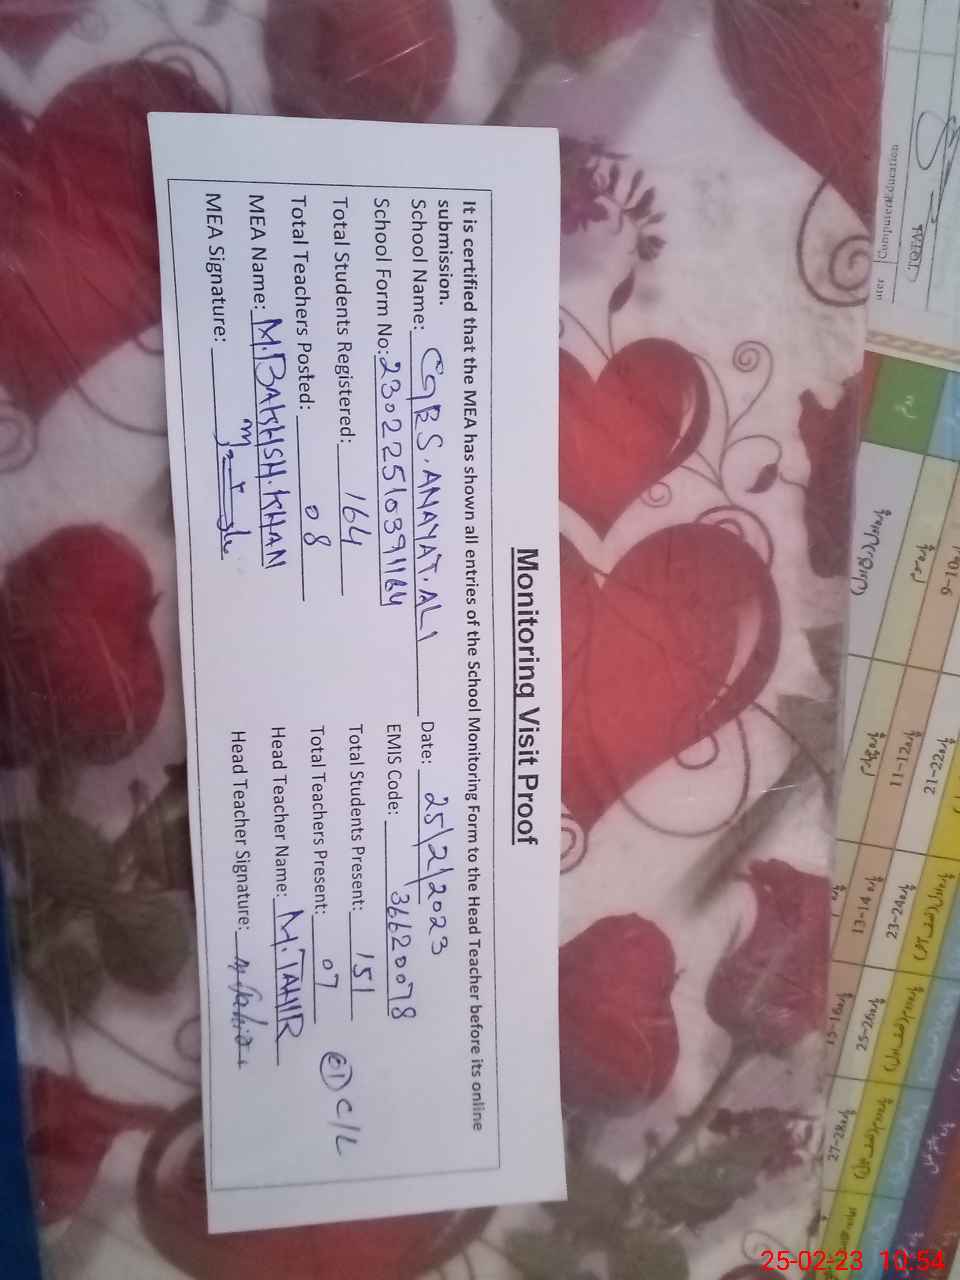 Monitoring Visit Proof
It is certified that the MEA has shown all entries of the School Monitoring Form to the Head Teacher before its online
submission.
School Name: CGBS. ANAYAT. ALI Date: 25/2/2023
School Form No: 23022510391164 EMIS Code: 36620078
Total Students Registered: 164 Total Students Present: 151
Total Teachers Posted: 08 Total Teachers Present: 07 01 C/L
MEA Name: M.BAKHSH.KHAN Head Teacher Name: M.TAHIR
MEA Signature: Head Teacher Signature: M.Tahir
21-22
23-24
25-26
27-28
11-12
13-14
25-02-23 10:54